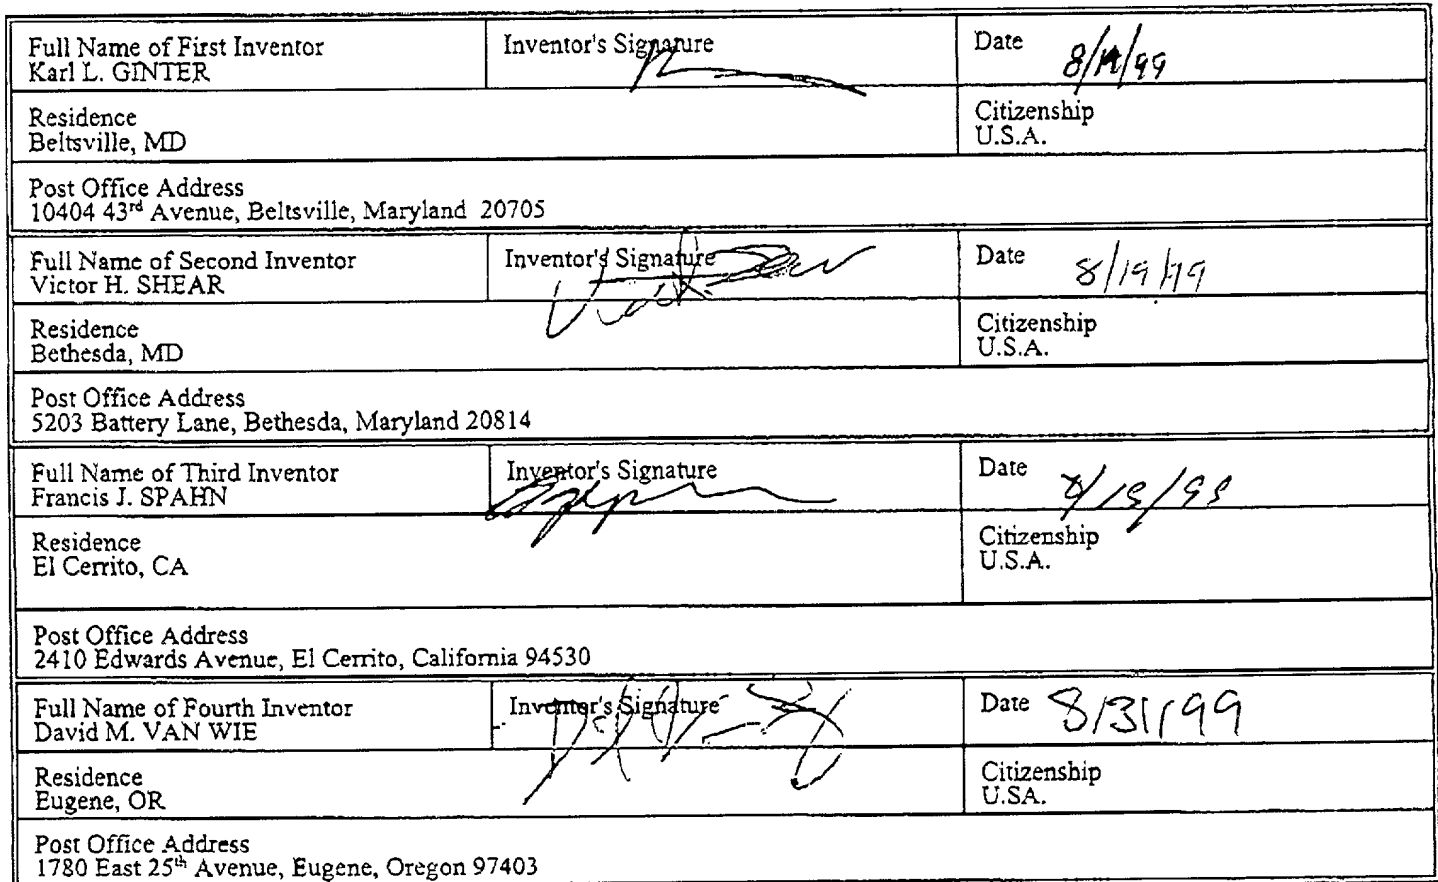 Full Name of First Inventor
Karl L. GINTER
Inventor's Signature
Date
Residence
Beltsville, MD
Citizenship
U.S.A.
Post Office Address
10404 43rd Avenue, Beltsville, Maryland 20705
Full Name of Second Inventor
Victor H. SHEAR
Inventor's Signature
Date 8/19/99
Residence
Bethesda, MD
Citizenship
U.S.A.
Post Office Address
5203 Battery Lane, Bethesda, Maryland 20814
Full Name of Third Inventor
Francis J. SPAHN
Inventor's Signature
Date
Residence
El Cerrito, CA
Citizenship
U.S.A.
Post Office Address
2410 Edwards Avenue, El Cerrito, California 94530
Full Name of Fourth Inventor
David M. VAN WIE
Inventor's Signature
Date 8/31/99
Residence
Eugene, OR
Citizenship
U.SA.
Post Office Address
1780 East 25th Avenue, Eugene, Oregon 97403